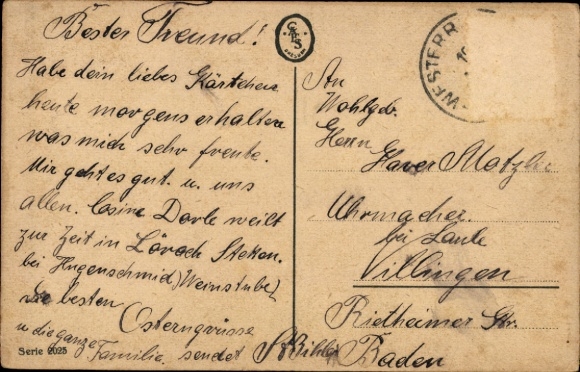 Bester Freund!
Habe dein liebes Kärtchen
heute morgens erhalten
was mich sehr freute.
Mir geht es gut. u. uns
allen. Cosine Dorle weilt
zur Zeit in Lörach Steten.
bei Hugenschmid (Weinstube)
die besten
Ostern grüsse
u die ganze
Familie. sendet
Serie 2025
WESTERR
An
Wohlgb.
Herrn
Xaver
Uhrmacher.
bei Laule
Villingen
Riedheimer Str.
Baden